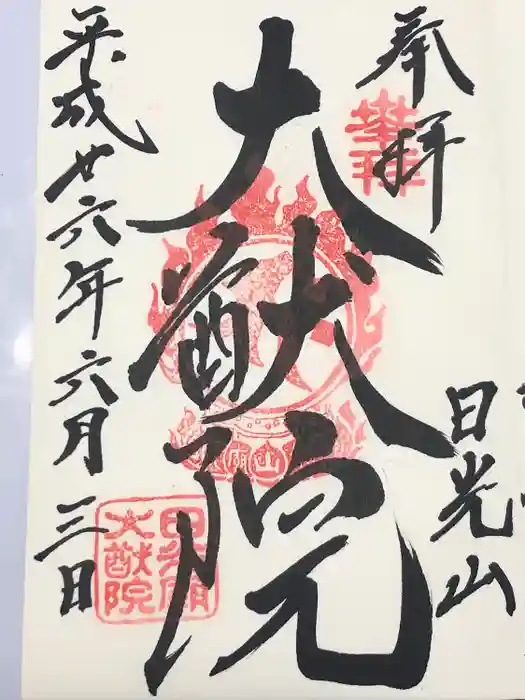 奉拝
日光山
大猷院
平成廿六年六月三日
大猷院